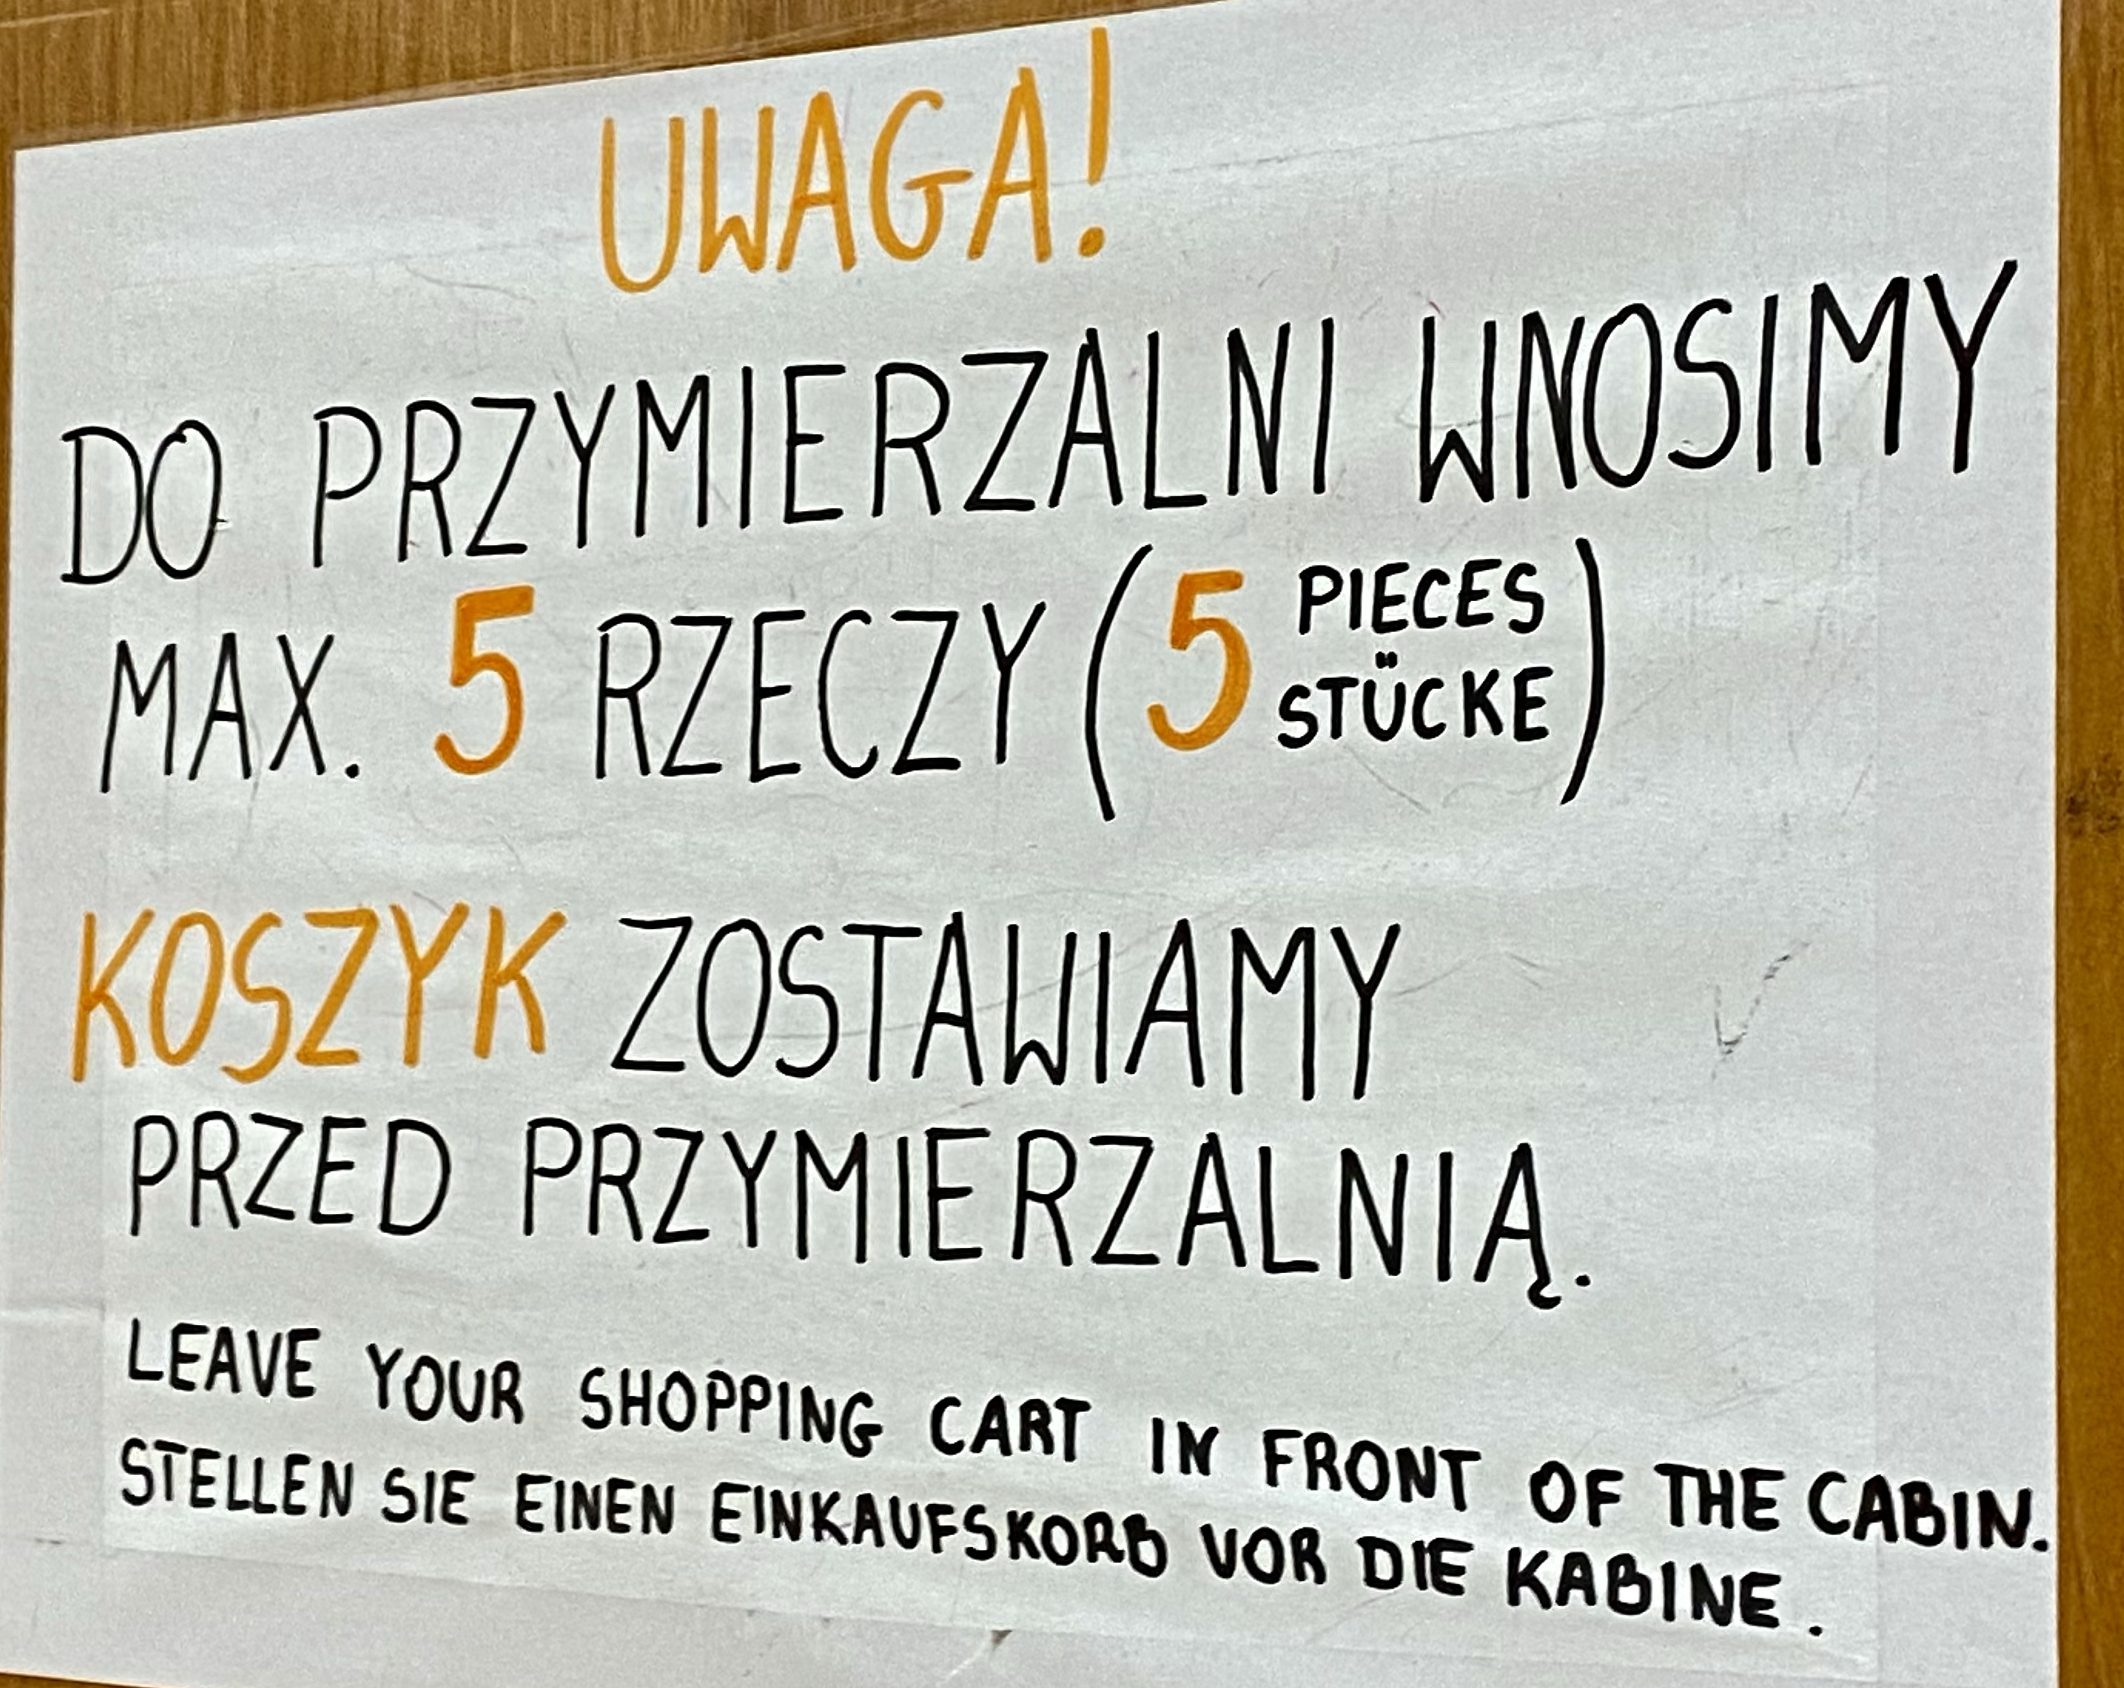 UWAGA!
DO PRZYMIERZALNI WNOSIMY
MAX. 5 RZECZY (5 PIECES
STÜCKE)
KOSZYK ZOSTAWIAMY
PRZED PRZYMIERZALNIĄ.
LEAVE YOUR SHOPPING CART IN FRONT OF THE CABIN.
STELLEN SIE EINEN EINKAUFSKORB VOR DIE KABINE.